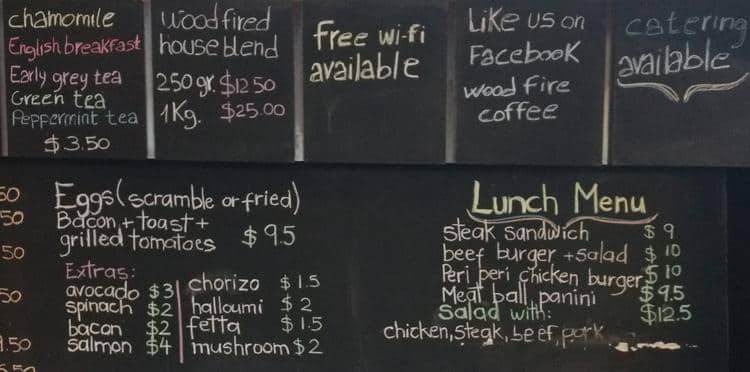 chamomile
English breakfast
Early grey tea
Green tea
Peppermint tea
$3.50
wood fired
house blend
250 gr. $12.50
1Kg. $25.00
free wi-fi
available
Like us on
Facebook
wood fire
coffee
catering
available
50
50
50
50
.50
5.50
Eggs (scramble or fried)
Bacon + toast +
grilled tomatoes $9.5
Extras:
avocado $3
spinach $2
bacon $2
salmon $4
chorizo $1.5
halloumi $2
fetta $1.5
mushroom $2
Lunch Menu
steak sandwich $9
beef burger + salad $10
Peri peri chicken burger $10
Meat ball panini $9.5
Salad with: $12.5
chicken, steak, beef, pork